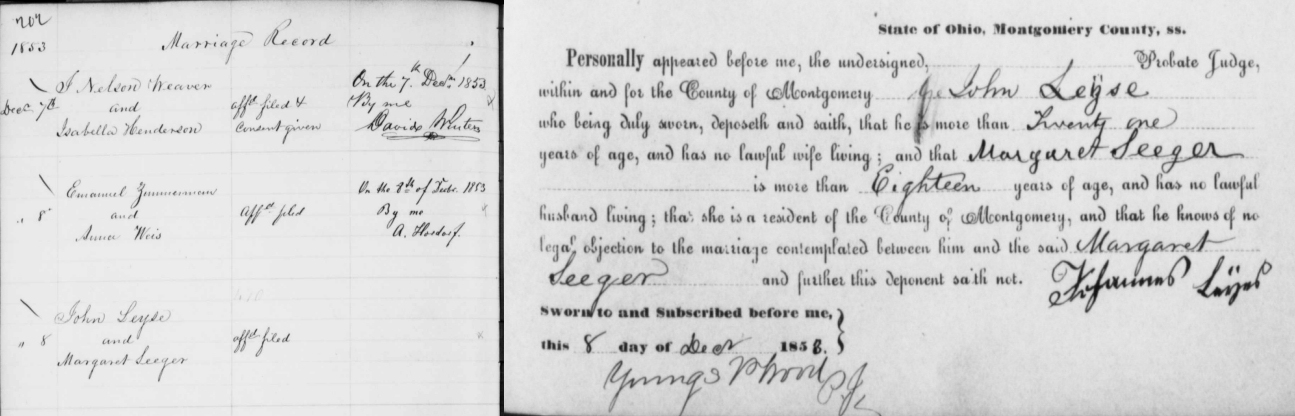 202
1853
Marriage Record
J Nelson Weaver
Decr 7th and
Isabella Henderson
affdt filed &
Consent given
On the 7th Decr 1853
By me
David Winters
Emanuel Zimmerman
" 8 and
Anna Weis
Affdt filed
On the 8th of 1853
By me
A.
John Leyse
" 8 and
Margaret Seeger
affdt filed
State of Ohio, Montgomery County, ss.
Personally appeared before me, the undersigned, Probate Judge,
within and for the County of Montgomery John Leÿse
who being duly sworn, deposeth and saith, that he is more than Twenty one
years of age, and has no lawful wife living; and that Margaret Seeger
is more than Eighteen years of age, and has no lawful
husband living; that she is a resident of the County of Montgomery, and that he knows of no
legal objection to the marriage contemplated between him and the said Margaret
Seeger and further this deponent saith not. Johannes Leÿes
Sworn to and Subscribed before me,
this 8 day of Decr 1853.
Youngs V Wood P.J.